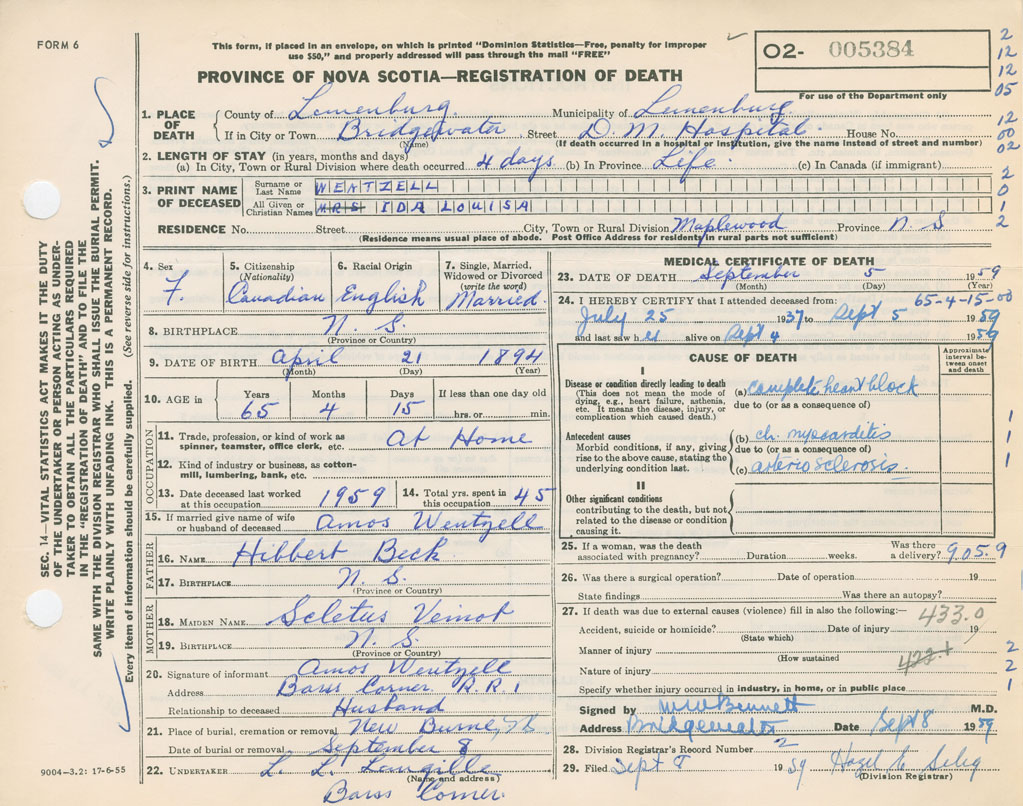 FORM 6
This form, if placed in an envelope, on which is printed "Dominion Statistics—Free, penalty for improper
use $50," and properly addressed will pass through the mail "FREE"
O2- 005384
For use of the Department only
PROVINCE OF NOVA SCOTIA—REGISTRATION OF DEATH
2
12
12
05
12
00
02
2
0
1
2
1. PLACE OF DEATH
County of Lunenburg Municipality of Lunenburg
If in City or Town Bridgewater Street D. M. Hospital House No.
(Name) (If death occurred in a hospital or institution, give the name instead of street and number)
2. LENGTH OF STAY (in years, months and days)
(a) In City, Town or Rural Division where death occurred 4 days (b) In Province Life. (c) In Canada (if immigrant)
3. PRINT NAME OF DECEASED
Surname or Last Name WENTZELL
All Given or Christian Names MRS IDA LOUISA
RESIDENCE No. Street City, Town or Rural Division Maplewood Province N S
(Residence means usual place of abode. Post Office Address for residents in rural parts not sufficient)
4. Sex
F.
5. Citizenship
(Nationality)
Canadian
6. Racial Origin
English
7. Single, Married,
Widowed or Divorced
(write the word)
Married.
8. BIRTHPLACE N. S.
(Province or Country)
9. DATE OF BIRTH April 21 1894
(Month) (Day) (Year)
10. AGE in
Years Months Days If less than one day old
65 4 15 hrs. or min.
OCCUPATION
11. Trade, profession, or kind of work as
spinner, teamster, office clerk, etc. At Home
12. Kind of industry or business, as cotton-
mill, lumbering, bank, etc.
13. Date deceased last worked
at this occupation 1959
14. Total yrs. spent in
this occupation 45
15. If married give name of wife
or husband of deceased Amos Wentzell
FATHER
16. NAME Hibbert Beck
17. BIRTHPLACE N. S.
(Province or Country)
MOTHER
18. MAIDEN NAME Scletus Veinot
19. BIRTHPLACE N. S.
(Province or Country)
20. Signature of informant Amos Wentzell
Address Barss Corner R.R. 1
Relationship to deceased Husband
21. Place of burial, cremation or removal New Burne, N.S.
Date of burial or removal September 8
22. UNDERTAKER L. L. Langille
(Name and address)
Barss Corner.
MEDICAL CERTIFICATE OF DEATH
23. DATE OF DEATH September 5 1959
(Month) (Day)
24. I HEREBY CERTIFY that I attended deceased from: 65-4-15-00
July 25 1937 to Sept 5 1959
and last saw h er alive on Sept 4 1959
CAUSE OF DEATH
Approximate
interval be-
tween onset
and death
I
Disease or condition directly leading to death
(This does not mean the mode of
dying, e.g., heart failure, asthenia,
etc. It means the disease, injury, or
complication which caused death.)
(a) complete heart block
due to (or as a consequence of)
Antecedent causes
Morbid conditions, if any, giving
rise to the above cause, stating the
underlying condition last.
(b) ch. myocarditis
due to (or as a consequence of)
(c) arteriosclerosis.
1
1
1
II
Other significant conditions
contributing to the death, but not
related to the disease or condition
causing it.
25. If a woman, was the death
associated with pregnancy? Duration weeks. Was there
a delivery? 905.9
26. Was there a surgical operation? Date of operation 19
State findings Was there an autopsy?
27. If death was due to external causes (violence) fill in also the following:—
433.0
Accident, suicide or homicide? Date of injury 19
(State which)
Manner of injury 2
(How sustained
422.1
Nature of injury 2
Specify whether injury occurred in industry, in home, or in public place 1
Signed by M W Bennett M.D.
Address Bridgewater Date Sept 8 1959
28. Division Registrar's Record Number 2
29. Filed Sept 8 1959 Hazel C Seleg
(Division Registrar)
SEC. 14—VITAL STATISTICS ACT MAKES IT THE DUTY
OF THE UNDERTAKER OR PERSON ACTING AS UNDER-
TAKER TO OBTAIN ALL THE PARTICULARS REQUIRED
IN THE "REGISTRATION OF DEATH" AND TO FILE THE
SAME WITH THE DIVISION REGISTRAR WHO SHALL ISSUE THE BURIAL PERMIT.
WRITE PLAINLY WITH UNFADING INK. THIS IS A PERMANENT RECORD.
Every item of information should be carefully supplied. (See reverse side for instructions.)
9004—3.2: 17-6-55